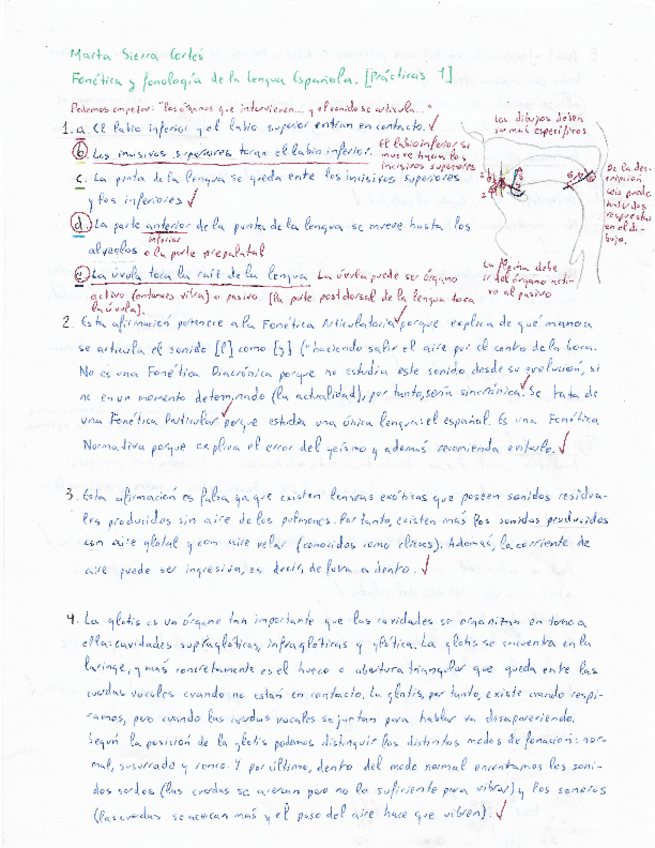 Marta Sierra Cortés
Fonética y fonología de la Lengua Española. [Prácticas 1]
Podemos empezar: "los órganos que intervienen... y el sonido se articula..."
1. a. El labio inferior y el labio superior entran en contacto. √
b. Los incisivos superiores tocan el labio inferior. El labio inferior se
mueve hacia los
incisivos superiores
c. La punta de la lengua se queda entre los incisivos superiores
y los inferiores √
d. La parte anterior de la punta de la lengua se mueve hasta los
inferior
alveolos o la parte prepalatal
e. La úvula toca la raíz de la lengua La úvula puede ser órgano
activo (entonces vibra) o pasivo. (la parte postdorsal de la lengua toca
la úvula).
Los dibujos deben
ser más específicos
De la des-
cripción
solo puede
haber dos
respuestas
en el di-
bujo.
La flecha debe
ir del órgano acti-
vo al pasivo
2. Esta afirmación pertenece a la Fonética Articulatoria √ porque explica de qué manera
se articula el sonido [l] como [y] ("haciendo salir el aire por el centro de la boca.
No es una Fonética Diacrónica porque no estudia este sonido desde su evolución, si
no en un momento determinado (la actualidad), por tanto, sería sincrónica. √ Se trata de
una Fonética Particular √ porque estudia una única lengua: el español. Es una Fonética
Normativa porque explica el error del yeísmo y además recomienda evitarlo. √
3. Esta afirmación es falsa, ya que existen lenguas exóticas que poseen sonidos residua-
les producidos sin aire de los pulmones. Por tanto, existen más los sonidos producidos
con aire glotal y con aire velar (conocidos como clicks). Además, la corriente de
aire puede ser ingresiva, es decir, de fuera a dentro. √
4. La glotis es un órgano tan importante que las cavidades se organizan en torno a
ella: cavidades supraglóticas, infraglóticas y glótica. La glotis se encuentra en la
laringe, y más concretamente es el hueco o abertura triangular que queda entre las
cuerdas vocales cuando no están en contacto. La glotis, por tanto, existe cuando respi-
ramos, pero cuando las cuerdas vocales se juntan para hablar va desapareciendo.
Según la posición de la glotis podemos distinguir los distintos modos de fonación: nor-
mal, susurrado y ronco. Y por último, dentro del modo normal encontramos los soni-
dos sordos (las cuerdas se acercan pero no lo suficiente para vibrar) y los sonoros
(las cuerdas se acercan más y el paso del aire hace que vibren). √